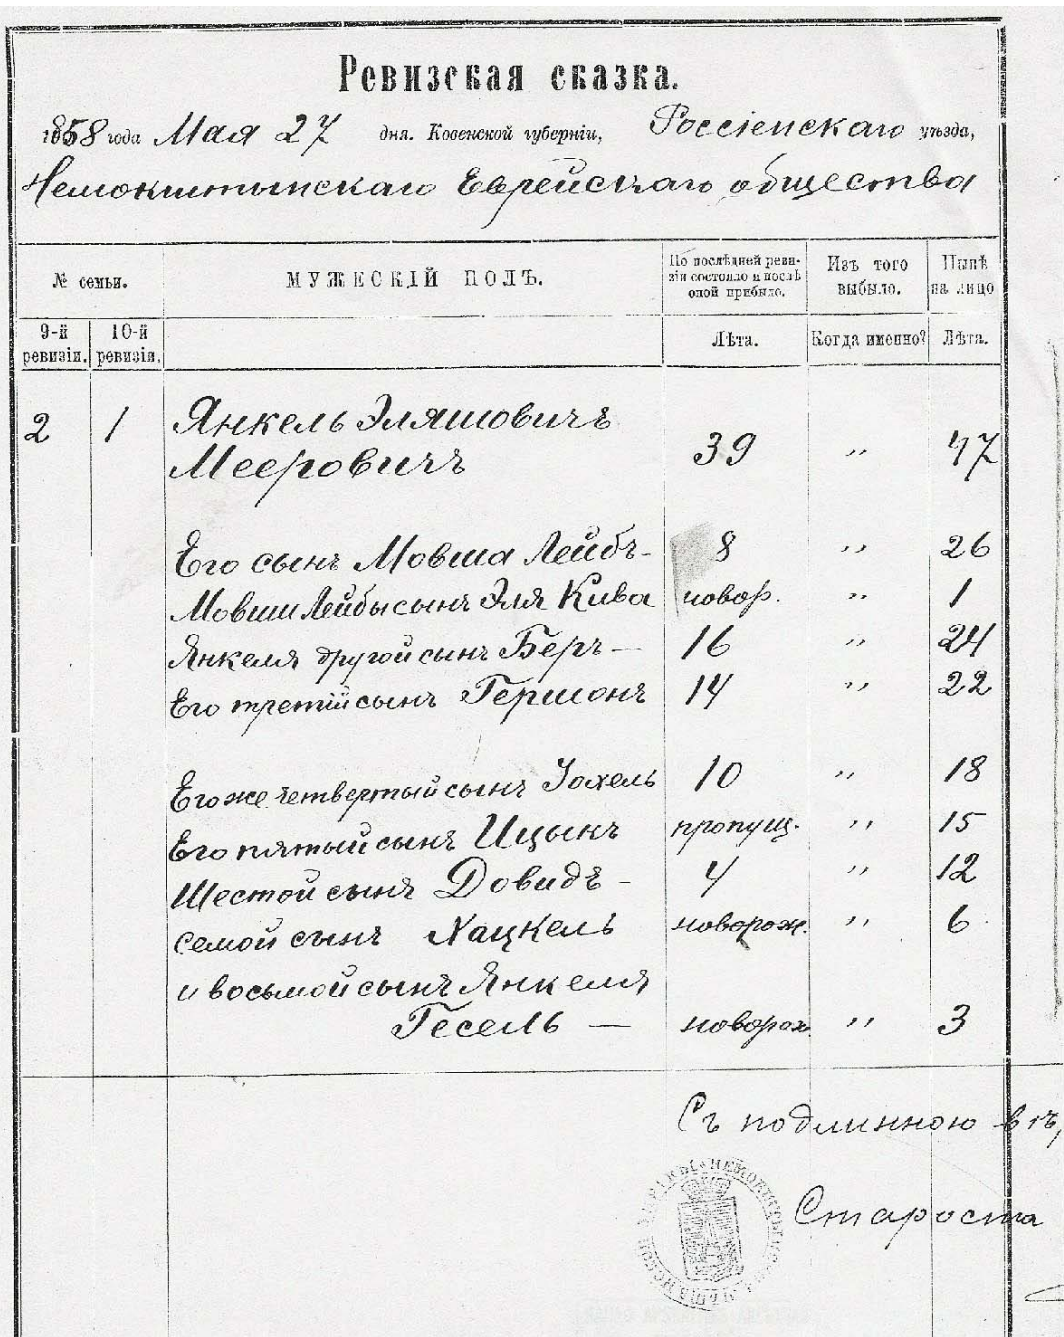 Ревизская сказка.
1858 года Мая 27 дня. Ковенской губерніи, Россіенскаго уѣзда,
Немокштынскаго Еврейскаго общества
№ семьи. МУЖЕСКІЙ ПОЛЪ. По послѣдней реви- Изъ того Нынѣ
зіи состояло и послѣ выбыло. на лицо
оной прибыло.
9-й 10-й Лѣта. Когда именно? Лѣта.
ревизіи. ревизія.
2 1 Янкель Эляшовичъ
Мееровичъ 39 " 47
Его сынъ Мовша Лейбъ- 8 " 26
Мовши Лейбы сынъ Эля Кива новор. " 1
Янкеля другой сынъ Беръ — 16 " 24
Его третій сынъ Гершонъ 14 " 22
Его же четвертый сынъ Іохель 10 " 18
Его пятый сынъ Ицыкъ пропущ. " 15
Шестой сынъ Довидъ - 4 " 12
семой сынъ Хацкель новорож. " 6
и восьмой сынъ Янкеля
Гесель — новорож. " 3
Съ подлинною вѣ
Староста